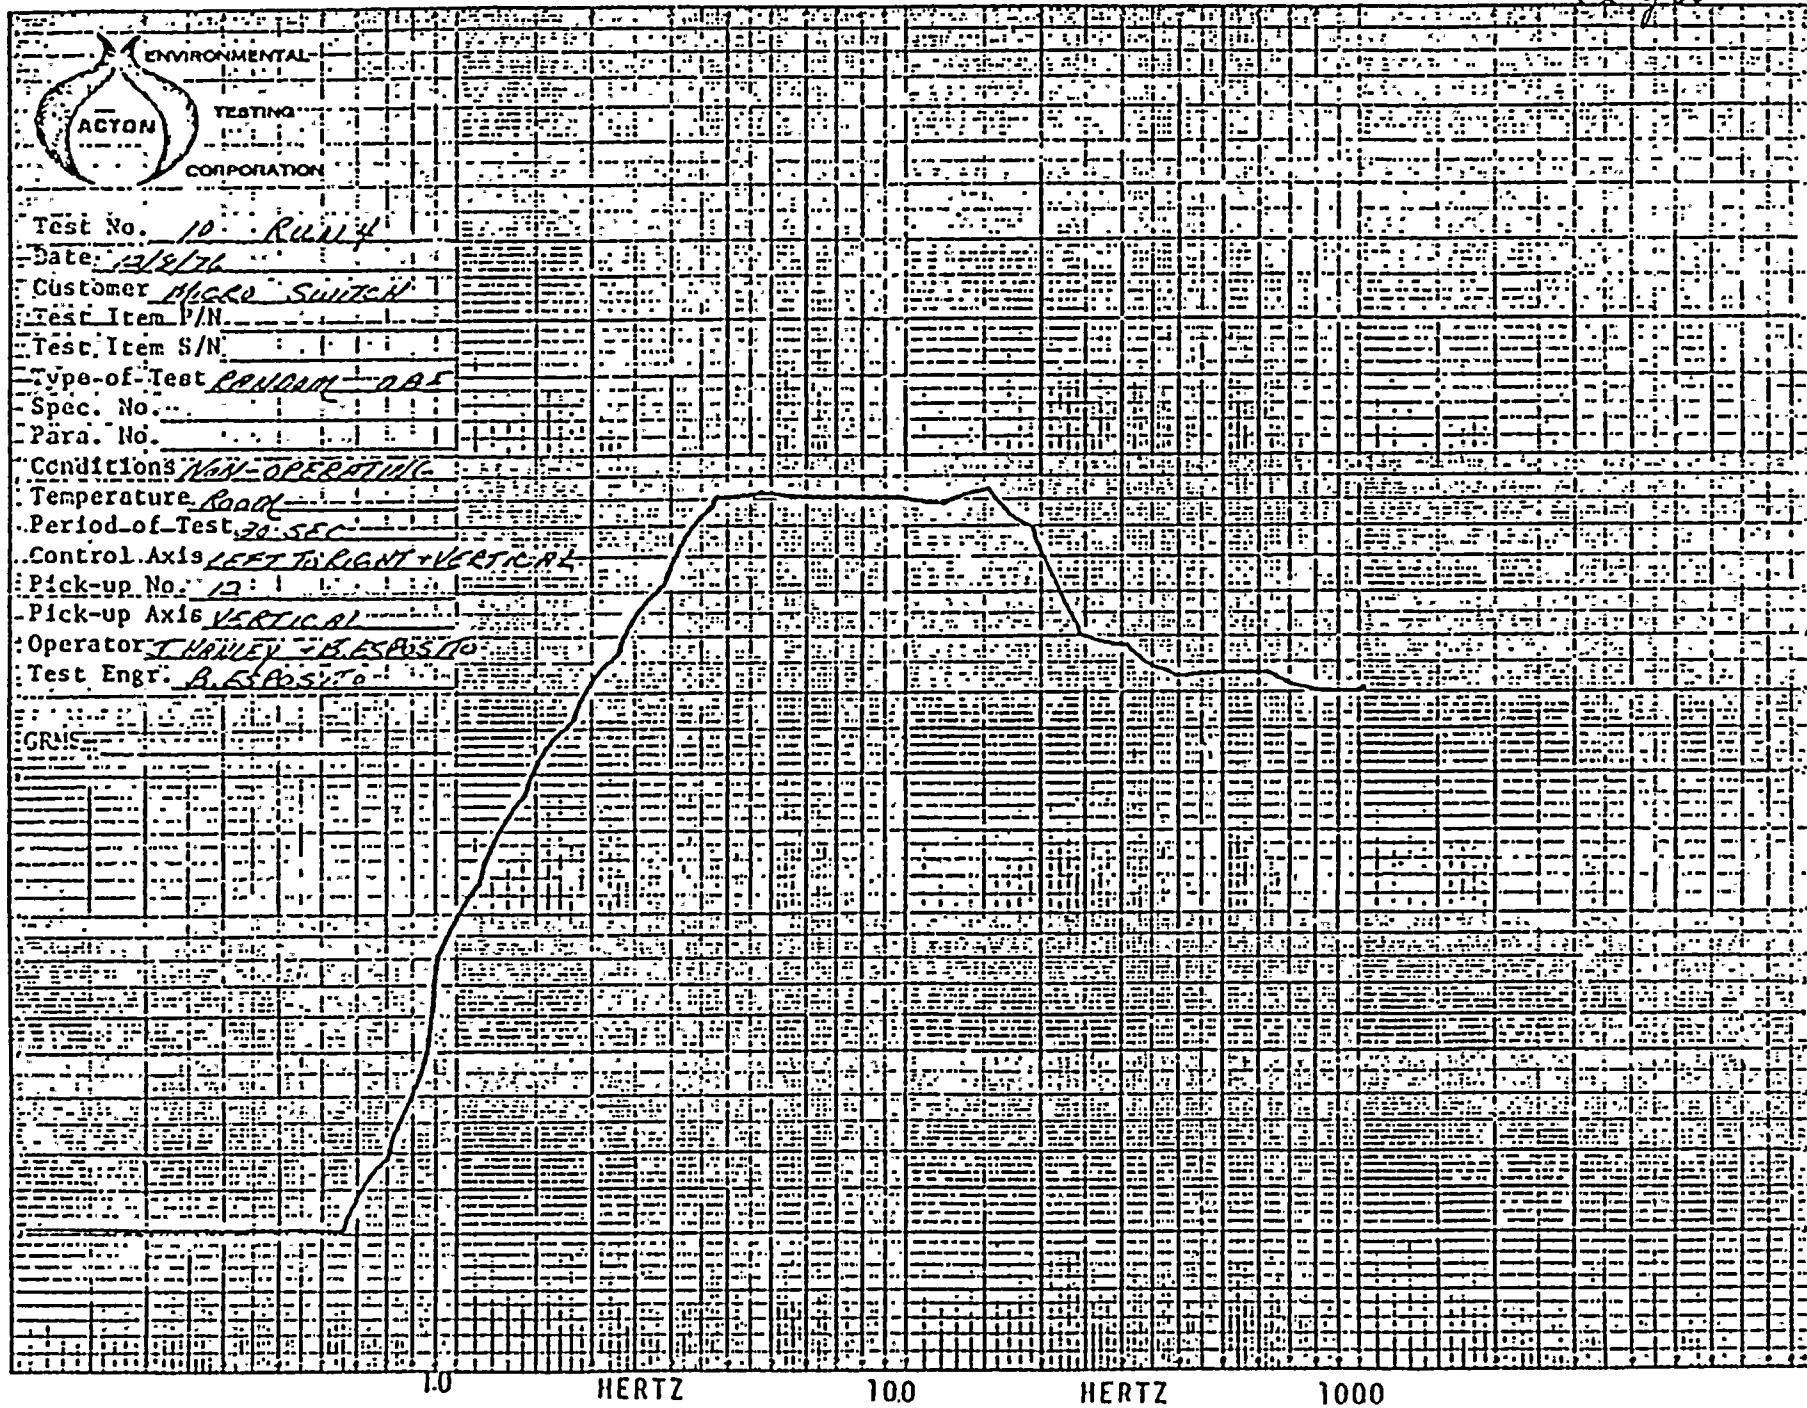 ENVIRONMENTAL
TESTING
ACTON
CORPORATION
Test No. 10 RUN 4
Date 12/8/76
Customer MICRO SWITCH
Test Item P/N
Test Item S/N
Type-of-Test RANDOM
Spec. No.
Para. No.
Conditions NON-OPERATING
Temperature ROOM
Period of Test 30 SEC
Control Axis LEFT TO RIGHT + VERTICAL
Pick-up No. 12
Pick-up Axis VERTICAL
Operator T. HANLEY - B. ESPOSITO
Test Engr. B. ESPOSITO
GRMS
1.0 HERTZ 10.0 HERTZ 100.0